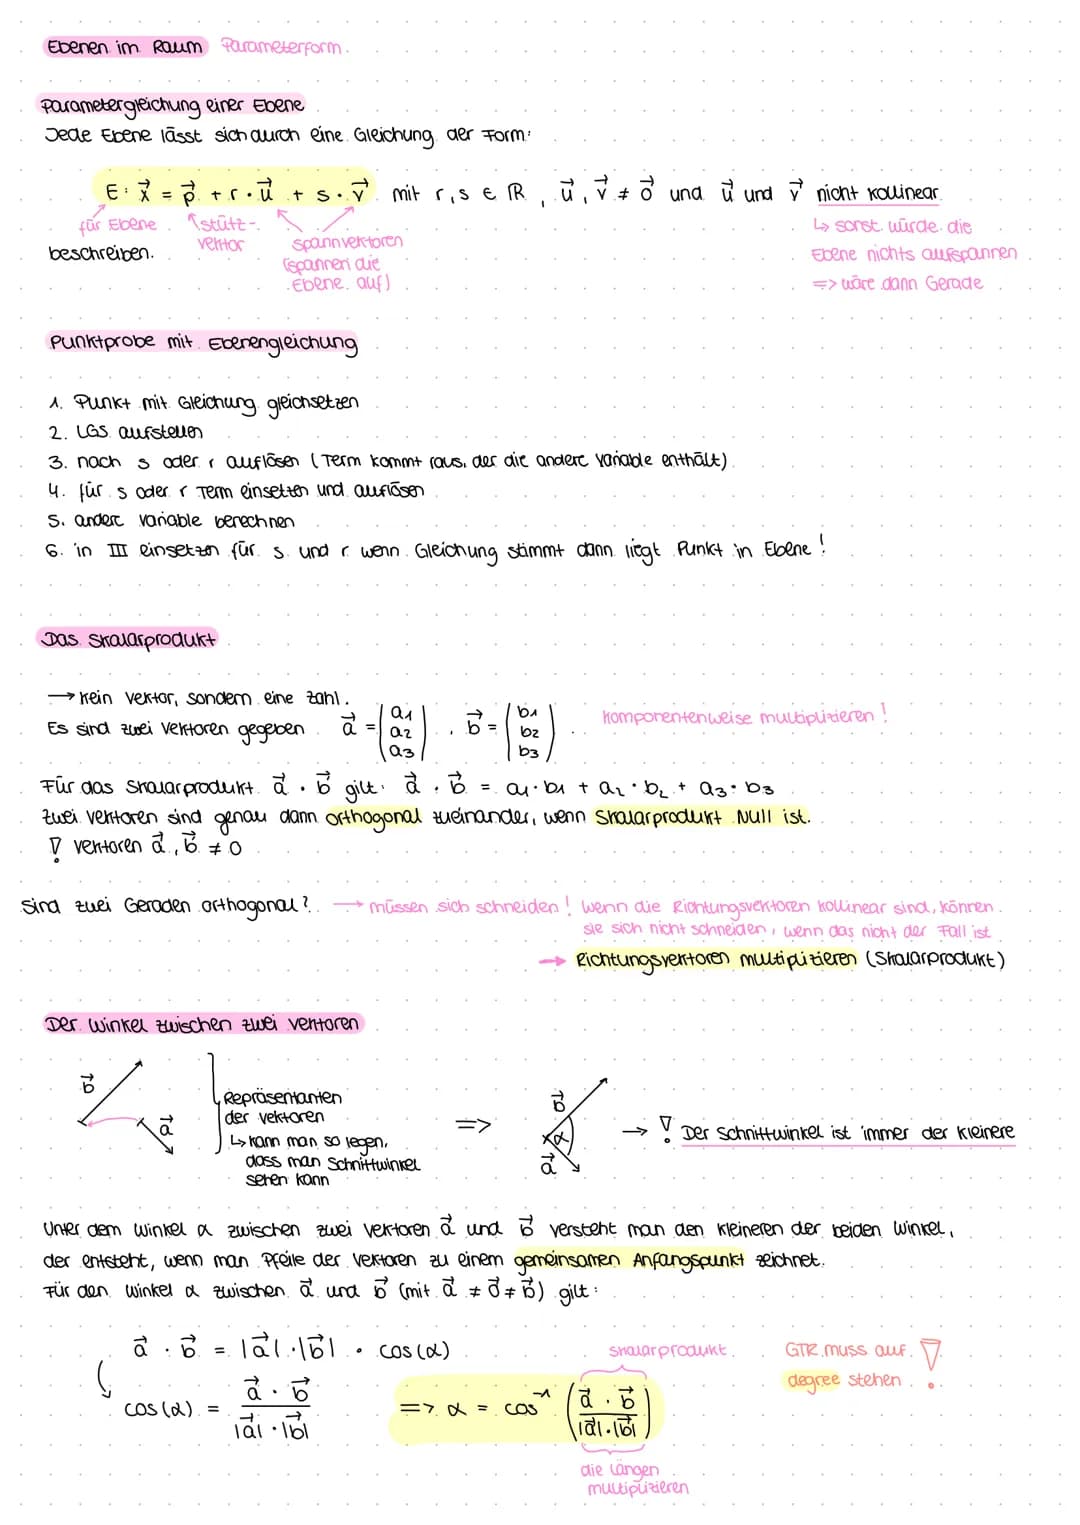 Ebenen im Raum Parameterform.
Parametergleichung einer Ebene
Jede Ebene lässt sich durch eine Gleichung der Form:
E: x⃗ = p⃗ + r · u⃗ + s · v⃗ mit r, s ∈ ℝ, u⃗, v⃗ ≠ o⃗ und u⃗ und v⃗ nicht kollinear
für Ebene
stütz-
vektor
Spannvektoren
(spannen die
Ebene auf)
↳ sonst würde die
Ebene nichts aufspannen
=> wäre dann Gerade
beschreiben.
Punktprobe mit Ebenengleichung
1. Punkt mit Gleichung gleichsetzen
2. LGS aufstellen
3. nach s oder r auflösen (Term kommt raus, der die andere Variable enthält)
4. für s oder r Term einsetzen und auflösen
5. andere Variable berechnen
6. in III einsetzen für s und r wenn Gleichung stimmt dann liegt Punkt in Ebene!
Das Skalarprodukt
→ kein Vektor, sondern eine Zahl.
Es sind zwei Vektoren gegeben a⃗ = (a1 a2 a3), b⃗ = (b1 b2 b3) komponentenweise multiplizieren!
Für das Skalarprodukt a⃗ · b⃗ gilt: a⃗ · b⃗ = a1 · b1 + a2 · b2 + a3 · b3
Zwei Vektoren sind genau dann orthogonal zueinander, wenn Skalarprodukt Null ist.
! Vektoren a⃗, b⃗ ≠ 0
Sind zwei Geraden orthogonal? → müssen sich schneiden! wenn die Richtungsvektoren kollinear sind, können
sie sich nicht schneiden, wenn das nicht der Fall ist
→ Richtungsvektoren multiplizieren (Skalarprodukt)
Der Winkel zwischen zwei Vektoren
b⃗
a⃗
Repräsentanten
der Vektoren
↳ kann man so legen,
dass man Schnittwinkel
sehen kann
=>
b⃗
α
a⃗
→ ! Der Schnittwinkel ist immer der kleinere
Unter dem Winkel α zwischen zwei Vektoren a⃗ und b⃗ versteht man den kleineren der beiden Winkel,
der entsteht, wenn man Pfeile der Vektoren zu einem gemeinsamen Anfangspunkt zeichnet.
Für den Winkel α zwischen a⃗ und b⃗ (mit a⃗ ≠ o⃗ ≠ b⃗) gilt:
a⃗ · b⃗ = |a⃗| · |b⃗| · cos(α)
cos(α) = a⃗ · b⃗ / |a⃗| · |b⃗|
Skalarprodukt
=> α = cos⁻¹ (a⃗ · b⃗ / |a⃗| · |b⃗|)
die Längen
multiplizieren
GTR muss auf !
degree stehen